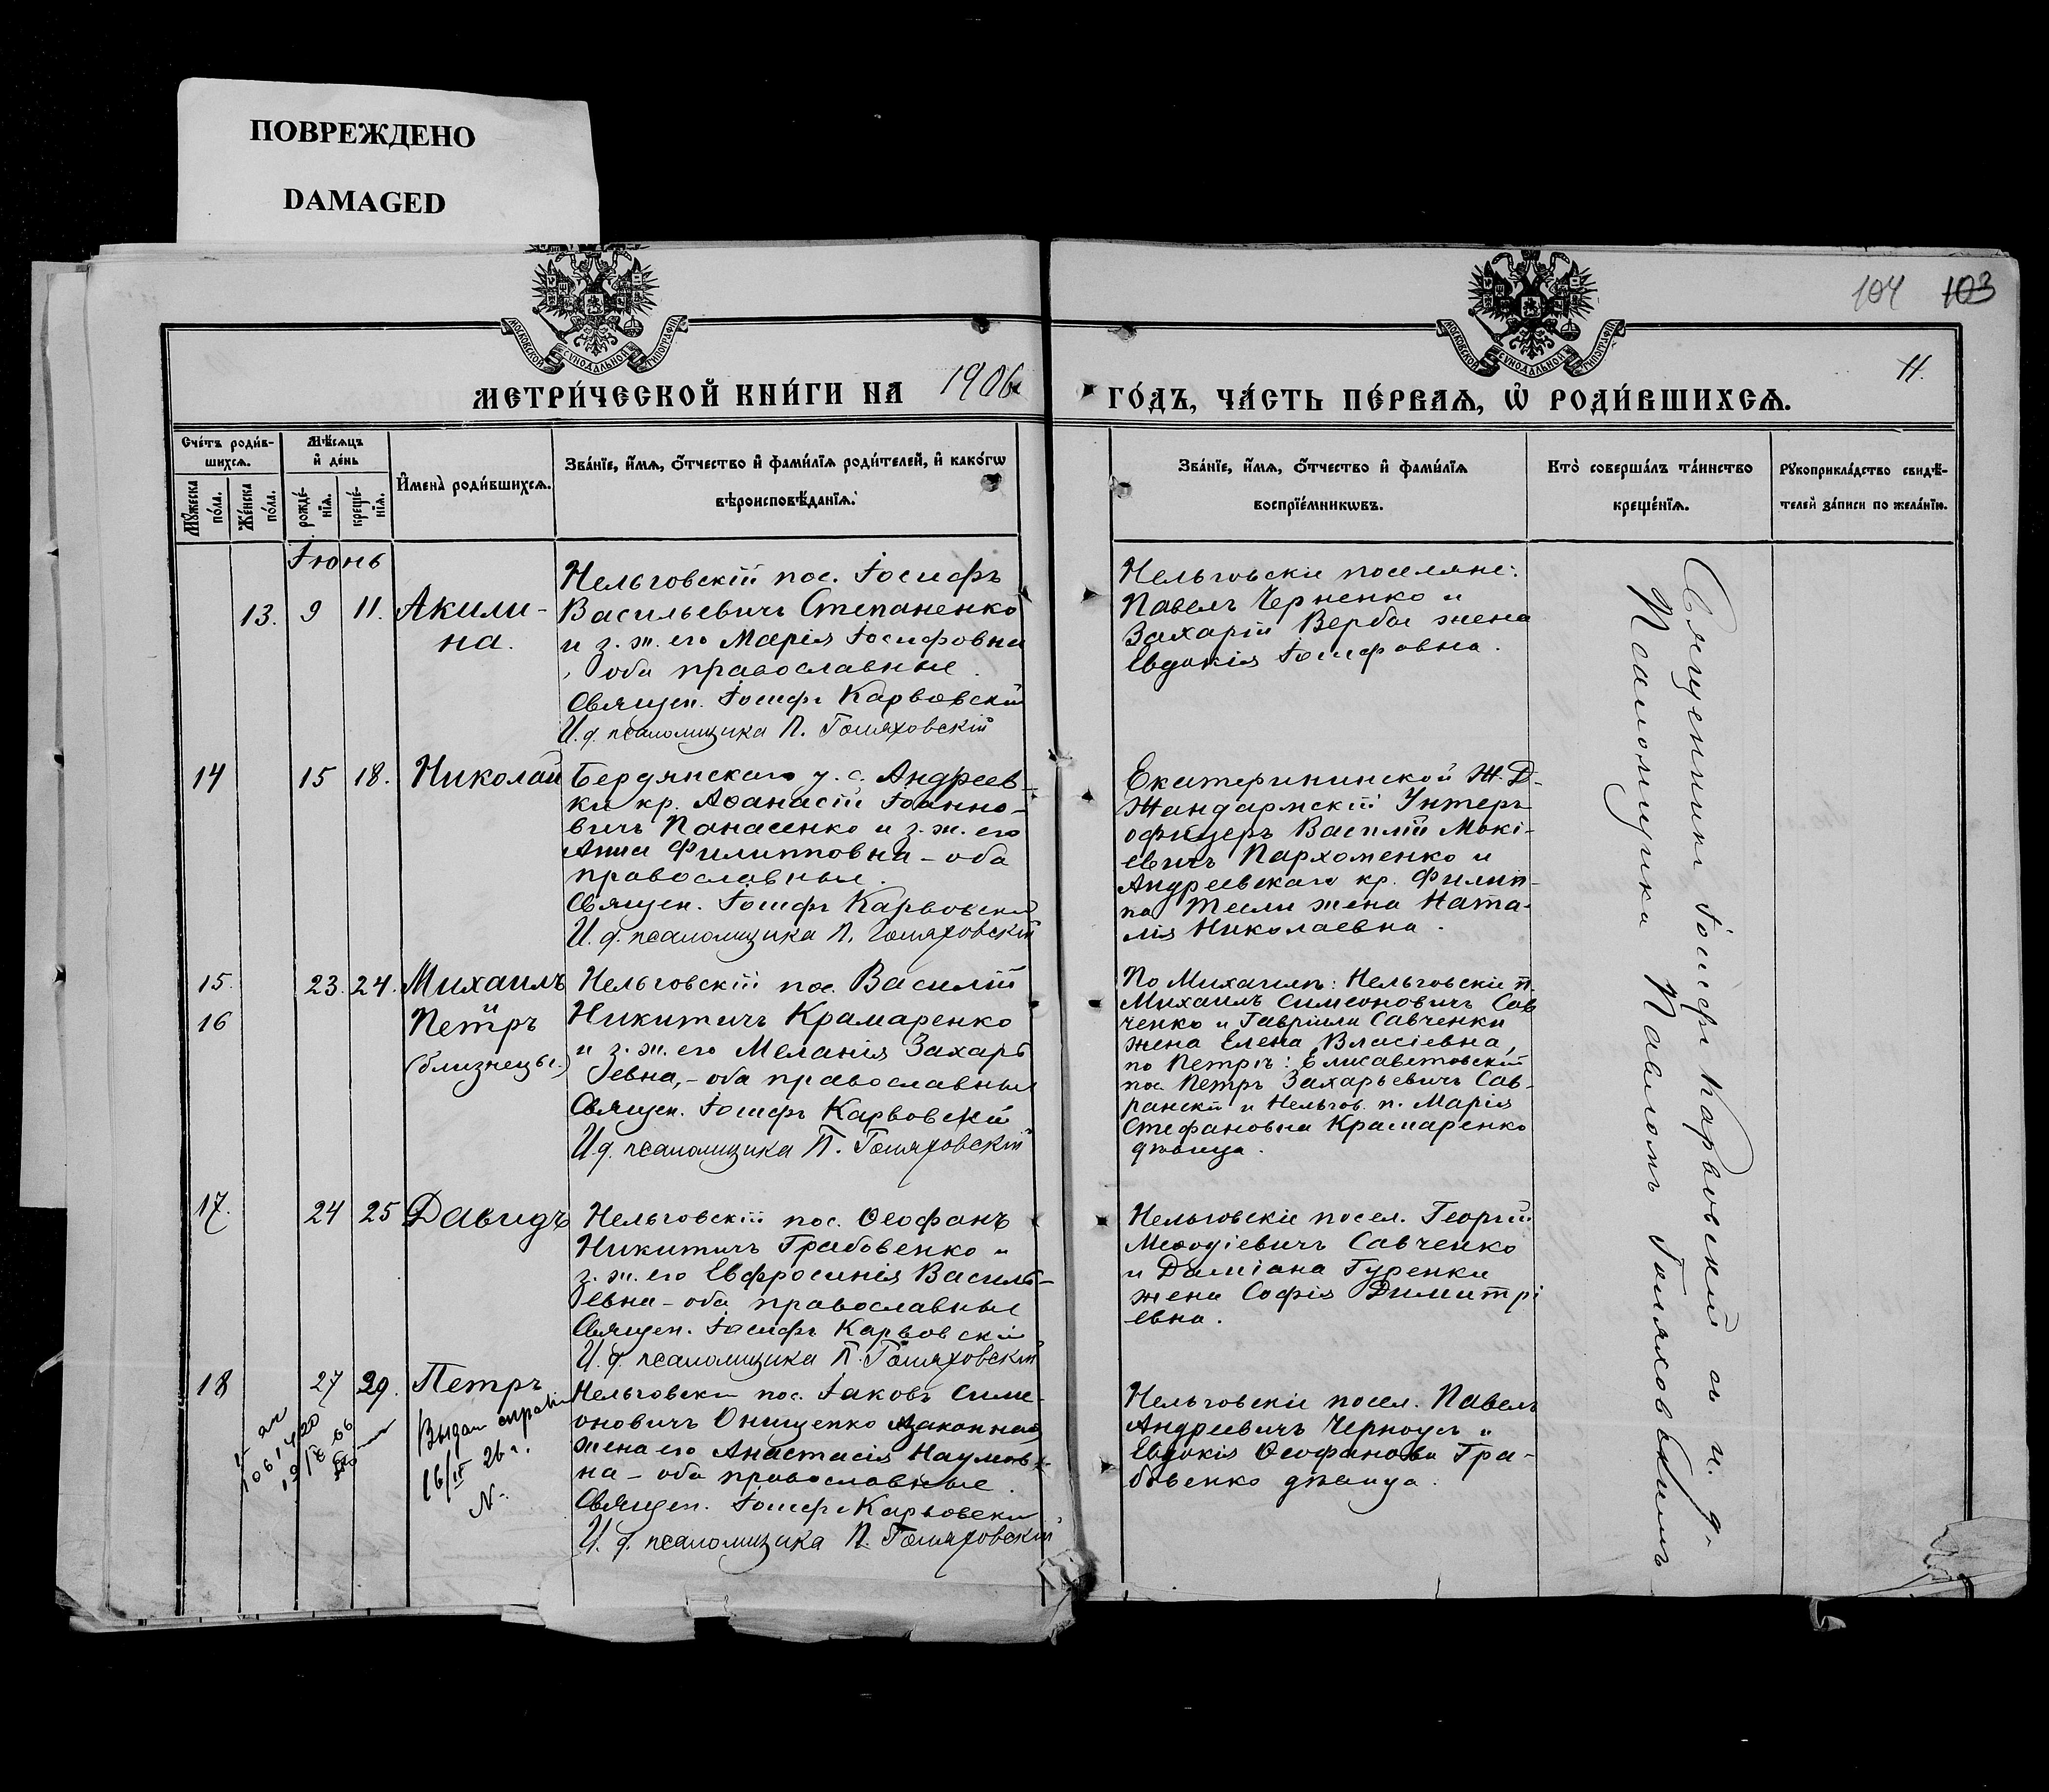 ПОВРЕЖДЕНО
DAMAGED
104 103
11.
МОСКОВСКОЙ СѴНОДАЛЬНОЙ ТИПОГРАФІИ
МОСКОВСКОЙ СѴНОДАЛЬНОЙ ТИПОГРАФІИ
МЕТРИ́ЧЕСКОЙ КНИ́ГИ НА 1906
ГО́ДЪ, ЧА́СТЬ ПЕ́РВАѦ, Ѡ҆ РОДИ́ВШИХСѦ.
Сче́тъ роди́в-
шихсѧ.
Мꙋ́жеска по́ла.
Же́нска по́ла.
Мѣ́сѧцъ
и҆ де́нь
рожде́-
нїѧ.
креще́-
нїѧ.
И҆мена̀ роди́вшихсѧ.
Зва́нїе, и҆́мѧ, ѻ҆́тчество и҆ фами́лїѧ роди́телей, и҆ како́гѡ
вѣроисповѣ́данїѧ.
Зва́нїе, и҆́мѧ, ѻ҆́тчество и҆ фами́лїѧ
воспрїе́мникѡвъ.
Кто̀ соверша́лъ та́инство
креще́нїѧ.
Рꙋкоприкла́дство свидѣ́-
телей за́писи по жела́нїю.
Іюнь
13. 9 11. Акили-
на.
Нельговскій пос. Іосифъ
Васильевичъ Степаненко
и з. ж. его Марія Іосифовна
, оба православные.
Священ. Іосифъ Карвовскій
И. д. псаломщика П. Гомяховскій
Нельговскіе поселяне:
Павелъ Черненко и
Захарій Вербы жена
Евдокія Іосифовна.
14 15 18. Николай
Бердянскаго у. с. Андреев-
ки кр. Аѳанасій Іоанно-
вичъ Панасенко и з. ж. его
Анна Филипповна - оба
православные.
Священ. Іосифъ Карвовскій
И. д. псаломщика П. Гомяховскій
Екатерининской Ж. Д.
Жандармскій Унтеръ
офицеръ Василій Мокі-
евичъ Пархоменко и
Андреевскаго кр. Филип-
па Тесли жена Ната-
лія Николаевна.
15. 23. 24. Михаилъ
и
16 Петръ
(близнецы.)
Нельговскій пос. Василій
Никитичъ Крамаренко
и з. ж. его Меланія Захарь
евна, - оба православные
Священ. Іосифъ Карвовскій
И. д. псаломщика П. Гомяховскій
По Михаилѣ: Нельговскіе п.
Михаилъ Симеоновичъ Сав
ченко и Гавріила Савченки
жена Елена Власіевна,
по Петрѣ: Елисаветовскій
пос. Петръ Захарьевичъ Сав-
ранскій и Нельгов. п. Марія
Стефановна Крамаренко
дѣвица.
17. 24 25 Давидъ
Нельговскій пос. Ѳеофанъ
Никитичъ Грабовенко и
з. ж. его Евфросинія Василь-
евна - оба православные
Священ. Іосифъ Карвовскій
И. д. псаломщика П. Гомяховскій
Нельговскіе посел. Георгій
Меѳодіевичъ Савченко
и Даміана Гуренки
жена Софія Димитрі
евна.
18 27 29. Петръ
Выдан справк
16/IV 26 г.
№
Нельговскій пос. Іаковъ Симе-
оновичъ Онищенко законная
жена его Анастасія Наумов-
на - оба православные.
Священ. Іосифъ Карвовскій
И. д. псаломщика П. Гомяховскій
Нельговскіе посел. Павелъ
Андреевичъ Черноусъ и
Евдокія Ѳеофанова Гра-
бовенко дѣвица.
Священникъ Іосифъ Карвовскій съ и. д.
Псаломщика Павломъ Гомяховскимъ